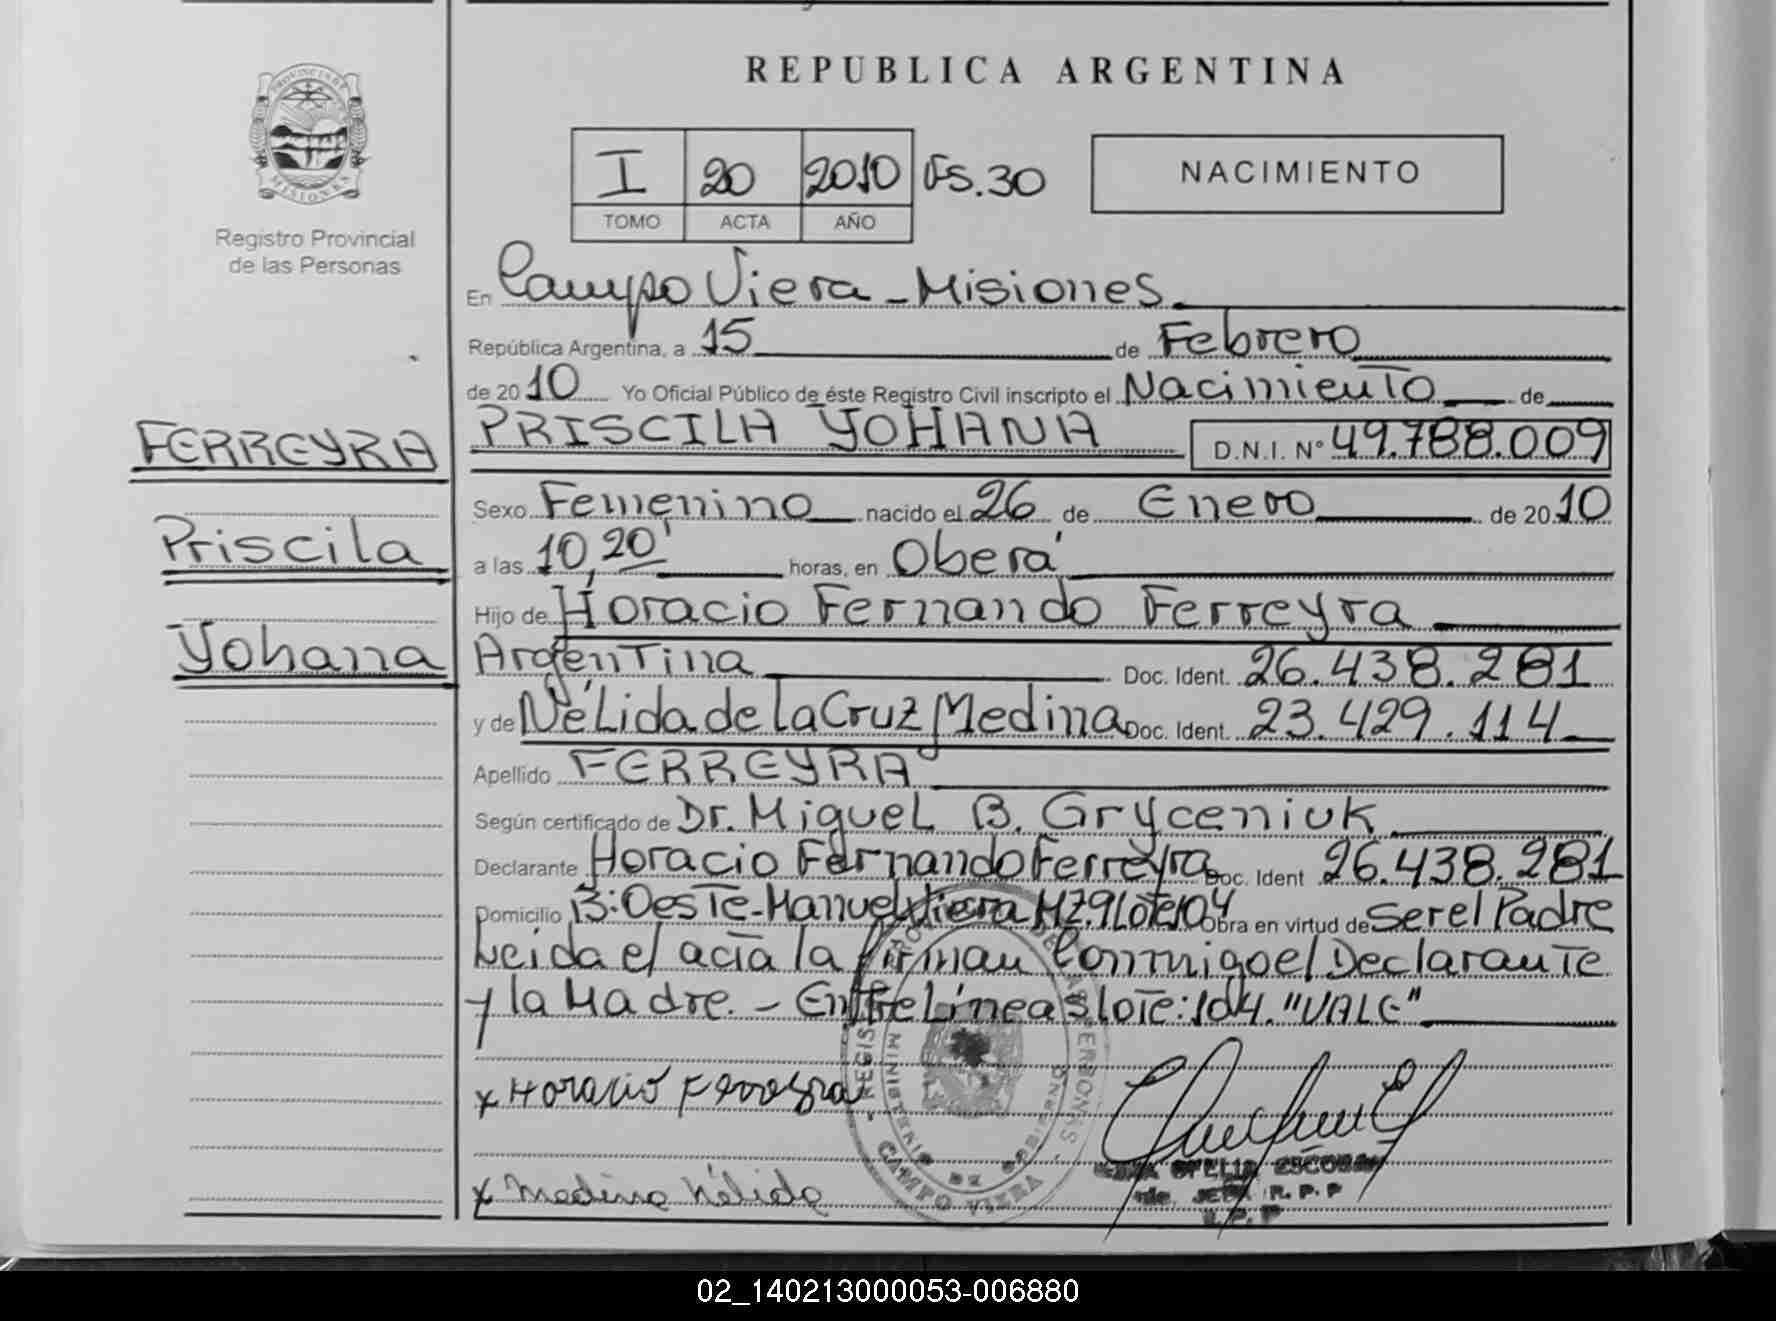 REPUBLICA ARGENTINA
PROVINCIA DE
MISIONES
Registro Provincial
de las Personas
I 20 2010 Fs. 30
TOMO ACTA AÑO
NACIMIENTO
En Campo Viera - Misiones
República Argentina, a 15 de Febrero
de 2010 Yo Oficial Público de éste Registro Civil inscripto el Nacimiento de
PRISCILA YOHANA D.N.I. Nº 49.788.009
FERREYRA
Priscila
Yohana
Sexo Femenino nacido el 26 de Enero de 2010
a las 10,20' horas, en Oberá
Hijo de Horacio Fernando Ferreyra
Argentina Doc. Ident. 26.438.281
y de Nélida de la Cruz Medina Doc. Ident. 23.429.114
Apellido FERREYRA
Según certificado de Dr. Miguel B. Gryceniuk
Declarante Horacio Fernando Ferreyra Doc. Ident 26.438.281
Domicilio B: Oeste-Manuel Viera MZ.9 Lote 104 Obra en virtud de Ser el Padre
Leida el acta la firman Conmigo el Declarante
y la Madre. - Entre Líneas lote: 104. "VALE"
x Horacio Ferreyra
x Medina Nélida
CAMPO VIERA
MINISTERIO DE GOBIERNO
OFELIA ESCOBAR
JEFA R.P.P
R.P.P
02_140213000053-006880